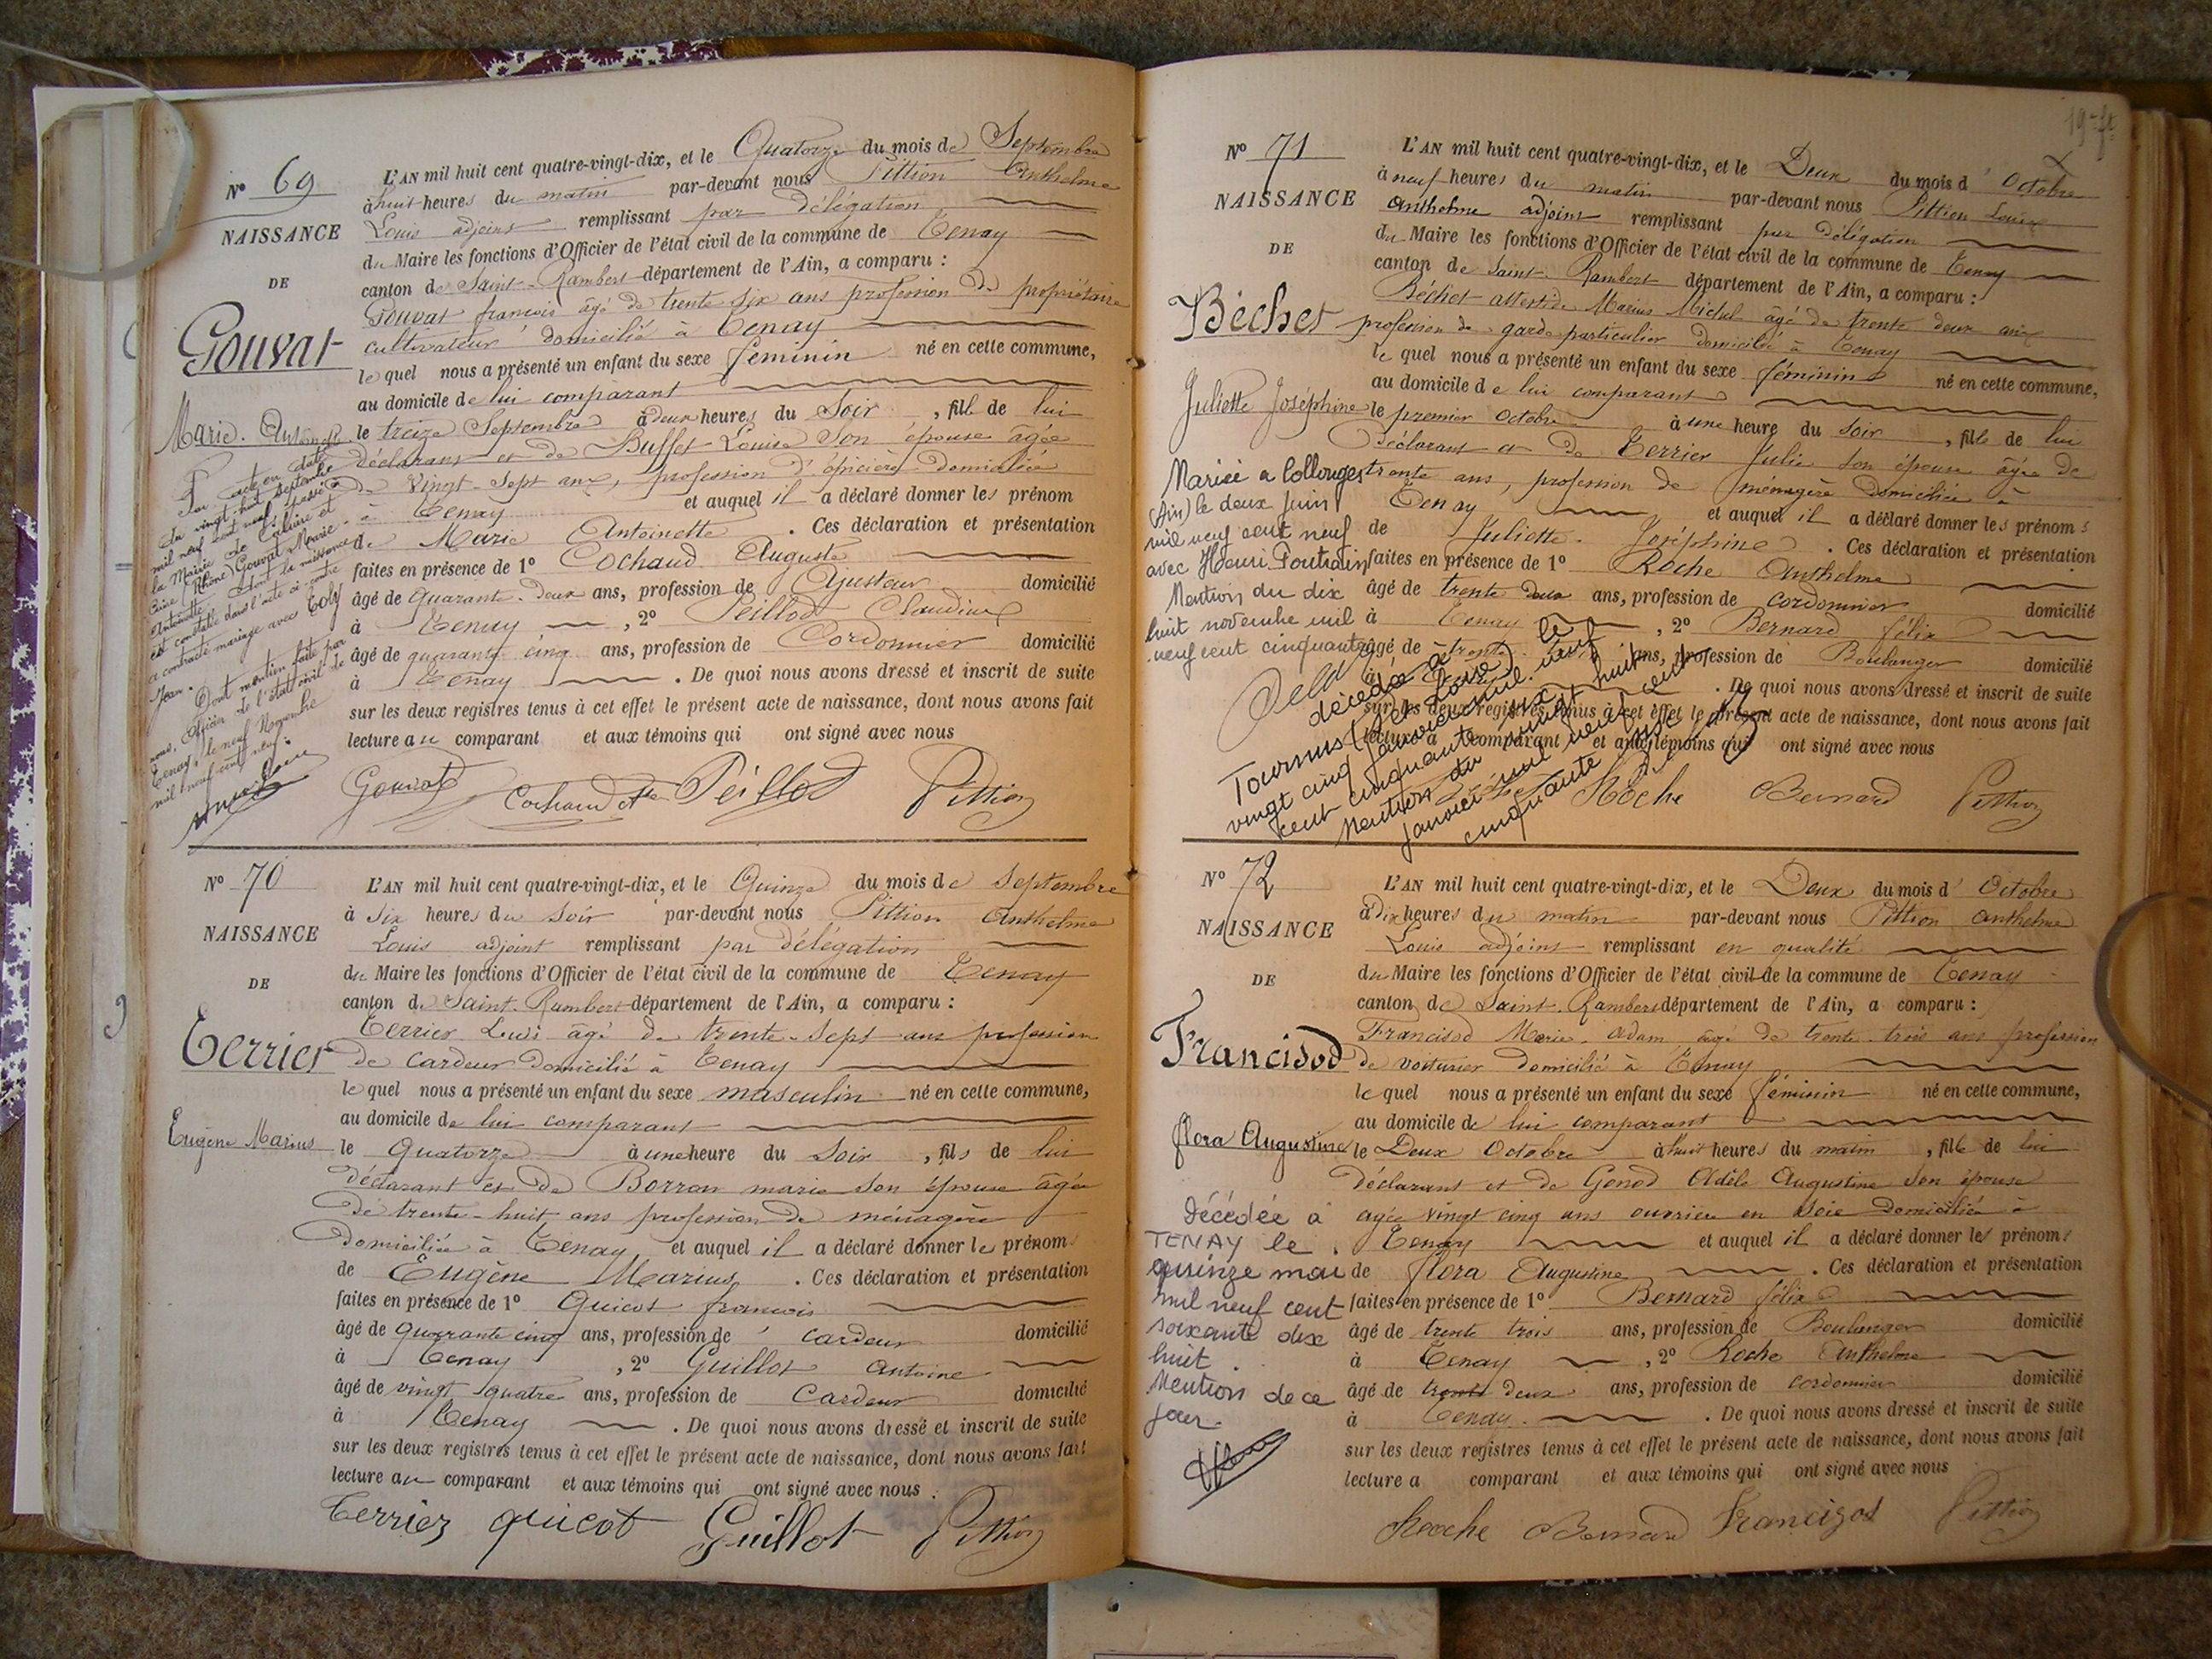 N° 69
NAISSANCE
DE
Gouvat
Marie-Antoinette
Par acte en date
du vingt-huit septembre
mil neuf cent neuf, passé à
la Mairie de Caluire et
Cuire (Rhône) Gouvat Marie-
Antoinette dont la naissance
est constatée dans l'acte ci-contre
a contracté mariage avec Coly
Jean.
Dont mention faite par
nous, Officier de l'état civil de
Tenay, le neuf Novembre
mil neuf cent neuf.
L'AN mil huit cent quatre-vingt-dix, et le Quatorze du mois de Septembre
à huit heures du matin par-devant nous Pittion Anthelme
Louis adjoint remplissant par délégation
du Maire les fonctions d'Officier de l'état civil de la commune de Tenay
canton de Saint-Rambert département de l'Ain, a comparu :
Gouvat françois âgé de trente six ans profession de propriétaire
cultivateur domicilié à Tenay
lequel nous a présenté un enfant du sexe féminin né en cette commune,
au domicile de lui comparant
le treize Septembre à deux heures du Soir, fille de lui
déclarant et de Buffet Louise Son épouse âgée
de vingt-sept ans, profession d'épicière domiciliée
à Tenay et auquel il a déclaré donner les prénom
de Marie Antoinette. Ces déclaration et présentation
faites en présence de 1° Cochaud Auguste
âgé de quarante-deux ans, profession de Ajusteur domicilié
à Tenay, 2° Peillod Claudius
âgé de quarante cinq ans, profession de Cordonnier domicilié
à Tenay. De quoi nous avons dressé et inscrit de suite
sur les deux registres tenus à cet effet le présent acte de naissance, dont nous avons fait
lecture au comparant et aux témoins qui ont signé avec nous
Gouvat Cochaud Peillod Pittion
N° 70
NAISSANCE
DE
Terrier
Eugène Marius
L'AN mil huit cent quatre-vingt-dix, et le Quinze du mois de Septembre
à six heures du soir par-devant nous Pittion Anthelme
Louis adjoint remplissant par délégation
du Maire les fonctions d'Officier de l'état civil de la commune de Tenay
canton de Saint-Rambert département de l'Ain, a comparu :
Terrier Louis âgé de trente-sept ans profession
de cardeur domicilié à Tenay
lequel nous a présenté un enfant du sexe masculin né en cette commune,
au domicile de lui comparant
le quatorze à une heure du Soir, fils de lui
déclarant et de Borron marie son épouse âgée
de trente-huit ans profession de ménagère
domiciliée à Tenay et auquel il a déclaré donner les prénoms
de Eugène Marius. Ces déclaration et présentation
faites en présence de 1° Quicot françois
âgé de quarante cinq ans, profession de cardeur domicilié
à Tenay, 2° Guillot Antoine
âgé de vingt quatre ans, profession de Cardeur domicilié
à Tenay. De quoi nous avons dressé et inscrit de suite
sur les deux registres tenus à cet effet le présent acte de naissance, dont nous avons fait
lecture au comparant et aux témoins qui ont signé avec nous.
Terrier quicot Guillot Pittion
N° 71
NAISSANCE
DE
Béchet
Juliette Joséphine
Mariée a Collonges
(Ain) le deux juin
mil neuf cent neuf
avec Henri
Mention du dix
huit novembre mil
neuf cent cinquante
décédée à
Tournus (S et Loire) le
vingt cinq janvier mil neuf
cent cinquante six
Mention du vingt huit
janvier mil neuf cent
cinquante six
L'AN mil huit cent quatre-vingt-dix, et le Deux du mois d'Octobre
à neuf heures du matin par-devant nous Pittion Louis
Anthelme adjoint remplissant par délégation
du Maire les fonctions d'Officier de l'état civil de la commune de Tenay
canton de Saint-Rambert département de l'Ain, a comparu :
Béchet Marius Michel âgé de trente deux ans
profession de garde particulier domicilié à Tenay
lequel nous a présenté un enfant du sexe féminin né en cette commune,
au domicile de lui comparant
le premier Octobre à une heure du soir, fille de lui
déclarant et de Terrier Julie son épouse âgée de
trente ans, profession de ménagère domiciliée à
Tenay et auquel il a déclaré donner les prénoms
de Juliette-Joséphine. Ces déclaration et présentation
faites en présence de 1° Roche Anthelme
âgé de trente deux ans, profession de cordonnier domicilié
à Tenay, 2° Bernard félix
âgé de trente ans, profession de Boulanger domicilié
à. De quoi nous avons dressé et inscrit de suite
sur les deux registres tenus à cet effet le présent acte de naissance, dont nous avons fait
lecture a comparant et aux témoins qui ont signé avec nous
Roche Bernard Pittion
N° 72
NAISSANCE
DE
Francisod
flora Augustine
Décédée à
TENAY le
quinze mai
mil neuf cent
soixante dix
huit.
Mention de ce
jour.
L'AN mil huit cent quatre-vingt-dix, et le Deux du mois d'Octobre
à dix heures du matin par-devant nous Pittion Anthelme
Louis adjoint remplissant en qualité
du Maire les fonctions d'Officier de l'état civil de la commune de Tenay
canton de Saint-Rambert département de l'Ain, a comparu :
Francisod Marie-Adam âgé de trente-trois ans profession
de voiturier domicilié à Tenay
lequel nous a présenté un enfant du sexe féminin né en cette commune,
au domicile de lui comparant
le Deux Octobre à huit heures du matin, fille de lui
déclarant et de Genod Adèle Augustine son épouse
agée vingt cinq ans ouvrière en Soie domiciliée à
Tenay et auquel il a déclaré donner les prénoms
de flora Augustine. Ces déclaration et présentation
faites en présence de 1° Bernard félix
âgé de trente trois ans, profession de Boulanger domicilié
à Tenay, 2° Roche Anthelme
âgé de trente deux ans, profession de cordonnier domicilié
à Tenay. De quoi nous avons dressé et inscrit de suite
sur les deux registres tenus à cet effet le présent acte de naissance, dont nous avons fait
lecture a comparant et aux témoins qui ont signé avec nous
Roche Bernard Francizod Pittion